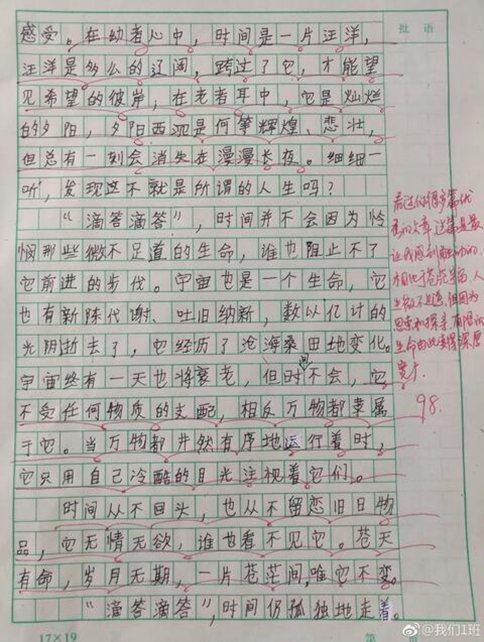 批语
感受。在幼者心中，时间是一片汪洋，
汪洋是多么的辽阔，跨过了它，才能望
见希望的彼岸，在老者耳中，它是灿烂
的夕阳，夕阳西是何等辉煌、悲壮，
但总有一刻会消失在漫漫长夜。细细一
听，发现这不就是所谓的人生吗？
“滴答滴答”，时间并不会因为怜
悯那些微不足道的生命，谁也阻止不了
它前进的步伐。宇宙也是一个生命，它
也有新陈代谢、吐旧纳新，数以亿计的
光阴逝去了，它经历了沧海桑田地变化。
宇宙终有一天也将衰老，但时间不会，它
不受任何物质的支配，相反万物都隶属
于它。当万物都井然有序地运行着时，
它只用自己冷酷的目光注视着它们。
时间从不回头，也从不留恋旧日物
品，它无情无欲，谁也看不见它。苍天
有命，岁月无期，一片苍茫间，唯它不变。
“滴答滴答”，时间仍孤独地走着。
看过你很多篇优
秀的文章，这篇是最
让我感到触动的，
相比于苍茫宇宙，人
生微不足道，但因为
思索和探寻，有限的
生命由此变得深厚
宽广。
98.
17×19
第
@我们1班